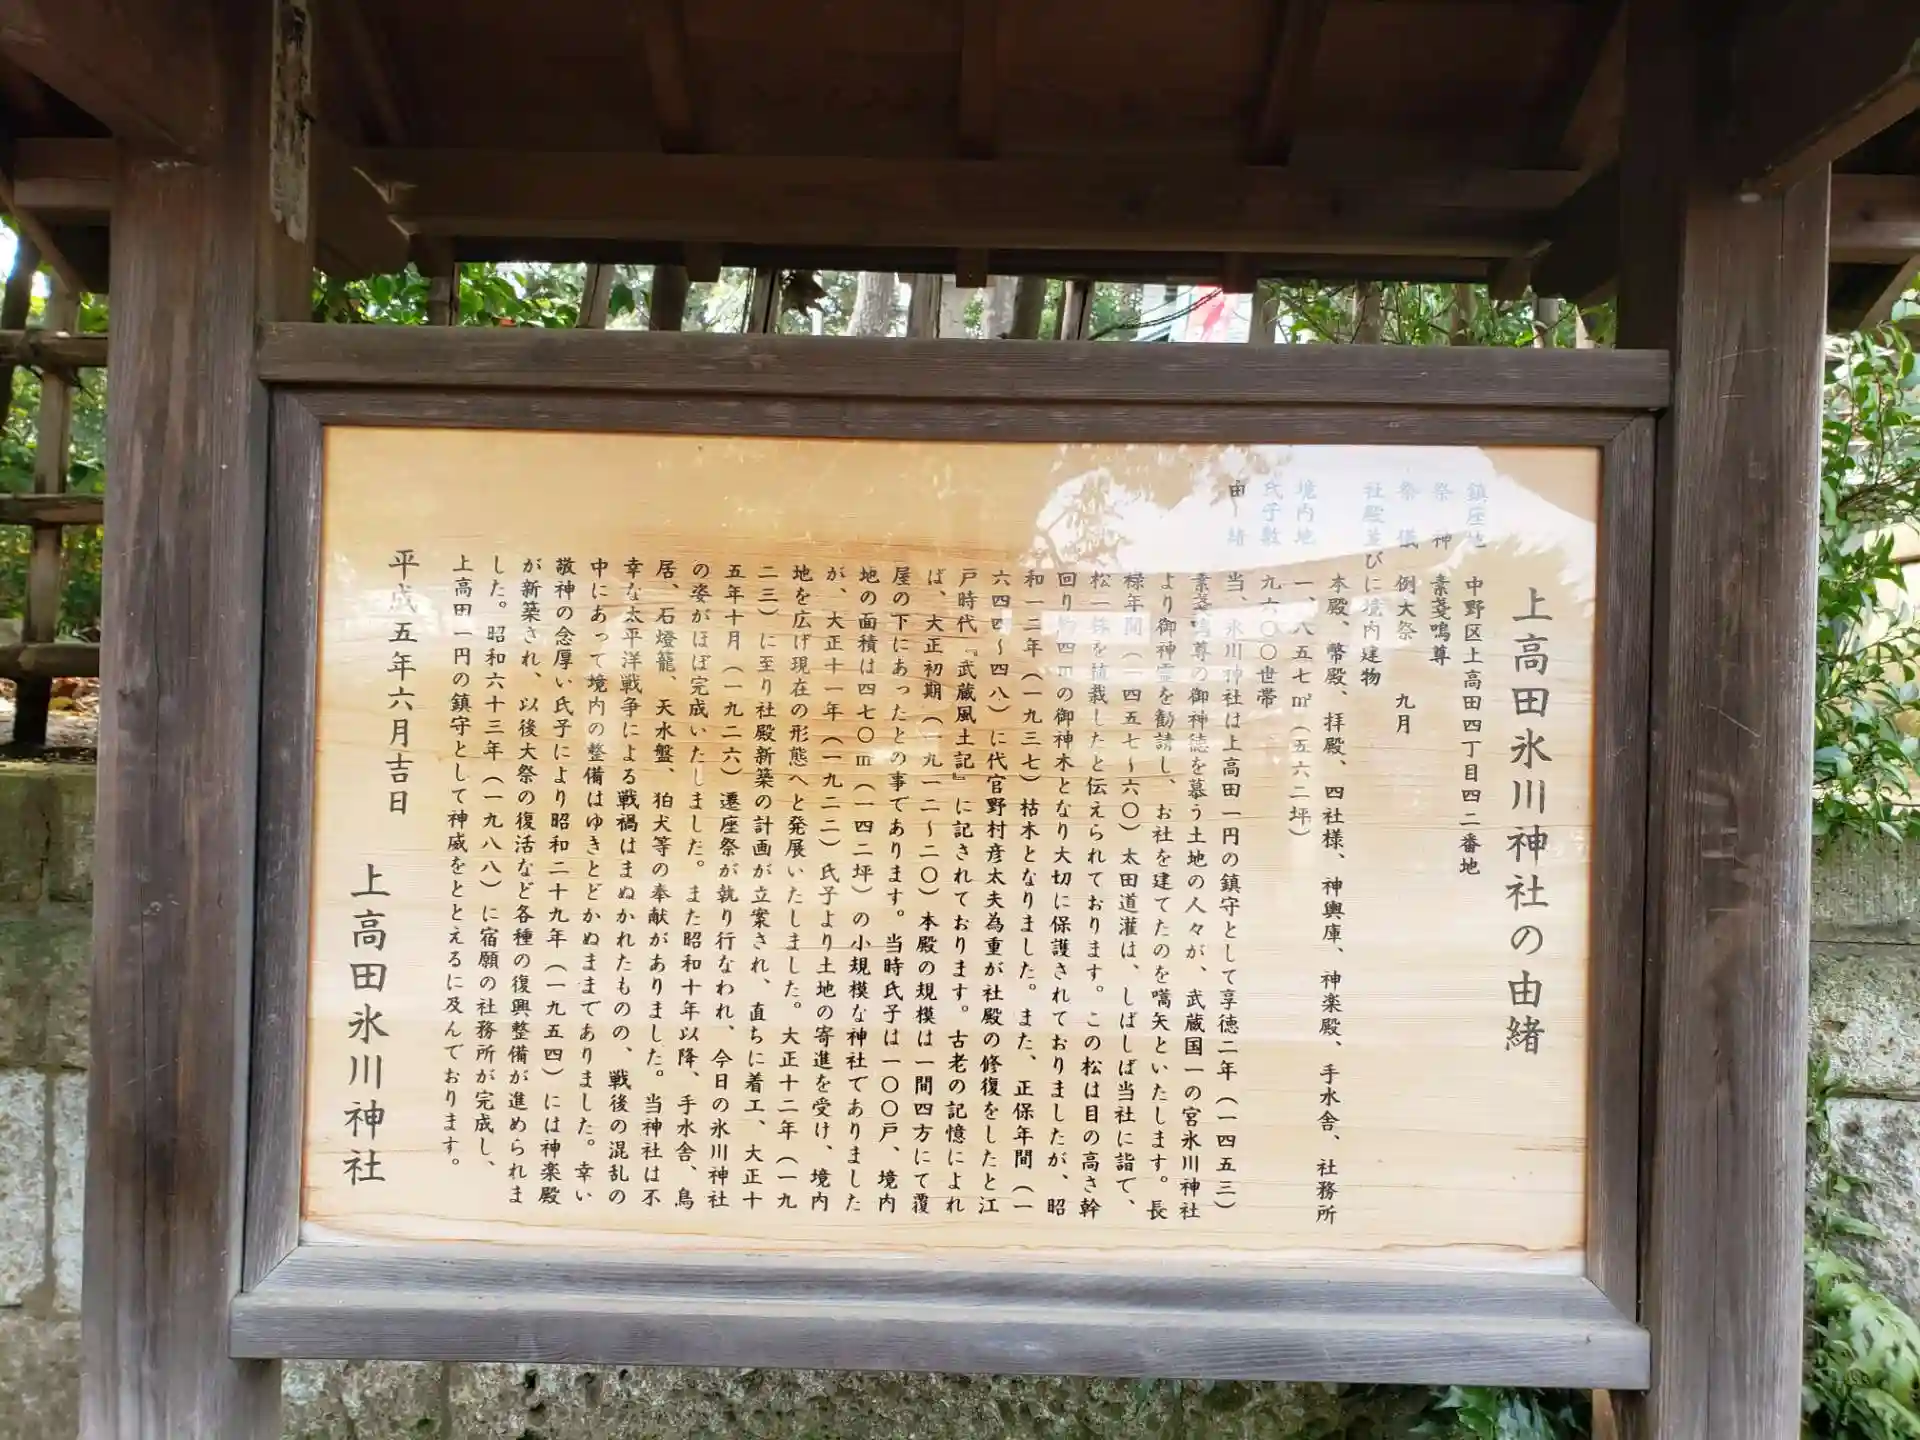 上高田氷川神社の由緒
鎮座地 中野区上高田四丁目四二番地
祭神 素戔嗚尊
祭儀 例大祭 九月
社殿並びに境内建物
本殿、幣殿、拝殿、四社様、神輿庫、神楽殿、手水舎、社務所
境内地 一、八五七㎡(五六二坪)
氏子数 九六〇〇世帯
由緒 当、氷川神社は上高田一円の鎮守として享徳二年(一四五三)
素戔嗚尊の御神徳を慕う土地の人々が、武蔵国一の宮氷川神社
より御神霊を勧請し、お社を建てたのを嚆矢といたします。長
禄年間(一四五七〜六〇)太田道灌は、しばしば当社に詣で、
松一株を植栽したと伝えられております。この松は目の高さ幹
回り約四mの御神木となり大切に保護されておりましたが、昭
和一二年(一九三七)枯木となりました。また、正保年間(一
六四四〜四八)に代官野村彦太夫為重が社殿の修復をしたと江
戸時代『武蔵風土記』に記されております。古老の記憶によれ
ば、大正初期(一九一二〜二〇)本殿の規模は一間四方にて覆
屋の下にあったとの事であります。当時氏子は一〇〇戸、境内
地の面積は四七〇㎡(一四二坪)の小規模な神社でありました
が、大正十一年(一九二二)氏子より土地の寄進を受け、境内
地を広げ現在の形態へと発展いたしました。大正十二年(一九
二三)に至り社殿新築の計画が立案され、直ちに着工、大正十
五年十月(一九二六)遷座祭が執り行なわれ、今日の氷川神社
の姿がほぼ完成いたしました。また昭和十年以降、手水舎、鳥
居、石燈籠、天水盤、狛犬等の奉献がありました。当神社は不
幸な太平洋戦争による戦禍はまぬかれたものの、戦後の混乱の
中にあって境内の整備はゆきとどかぬままでありました。幸い
敬神の念厚い氏子により昭和二十九年(一九五四)には神楽殿
が新築され、以後大祭の復活など各種の復興整備が進められま
した。昭和六十三年(一九八八)に宿願の社務所が完成し、
上高田一円の鎮守として神威をととえるに及んでおります。
平成五年六月吉日
上高田氷川神社